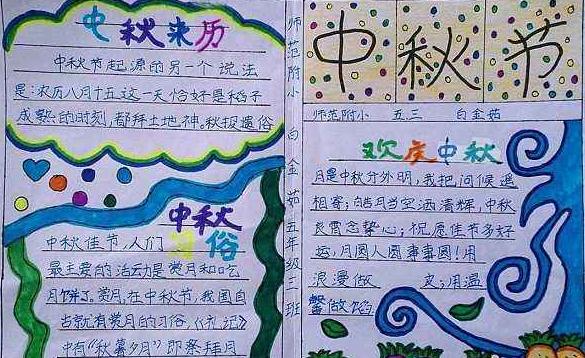 中秋来历
中秋节起源的另一个说法
是:农历八月十五这一天恰好是稻子
成熟的时刻,都拜土地神。秋报遗俗
中秋习俗
中秋佳节,人们
最主要的活动是赏月和吃
月饼了。赏月,在中秋节,我国自
古就有赏月的习俗,《礼记》
中有“秋暮夕月”即祭拜月
师范附小 白金茹 五年级三班
中秋节
师范附小 五三 白金茹
欢庆中秋
月是中秋分外明,我把问候遥
相寄;皓月当空洒清辉,中秋
良宵念挚心;祝愿佳节多好
运,月圆人圆事事圆!用
浪漫做 皮;用温
馨做馅